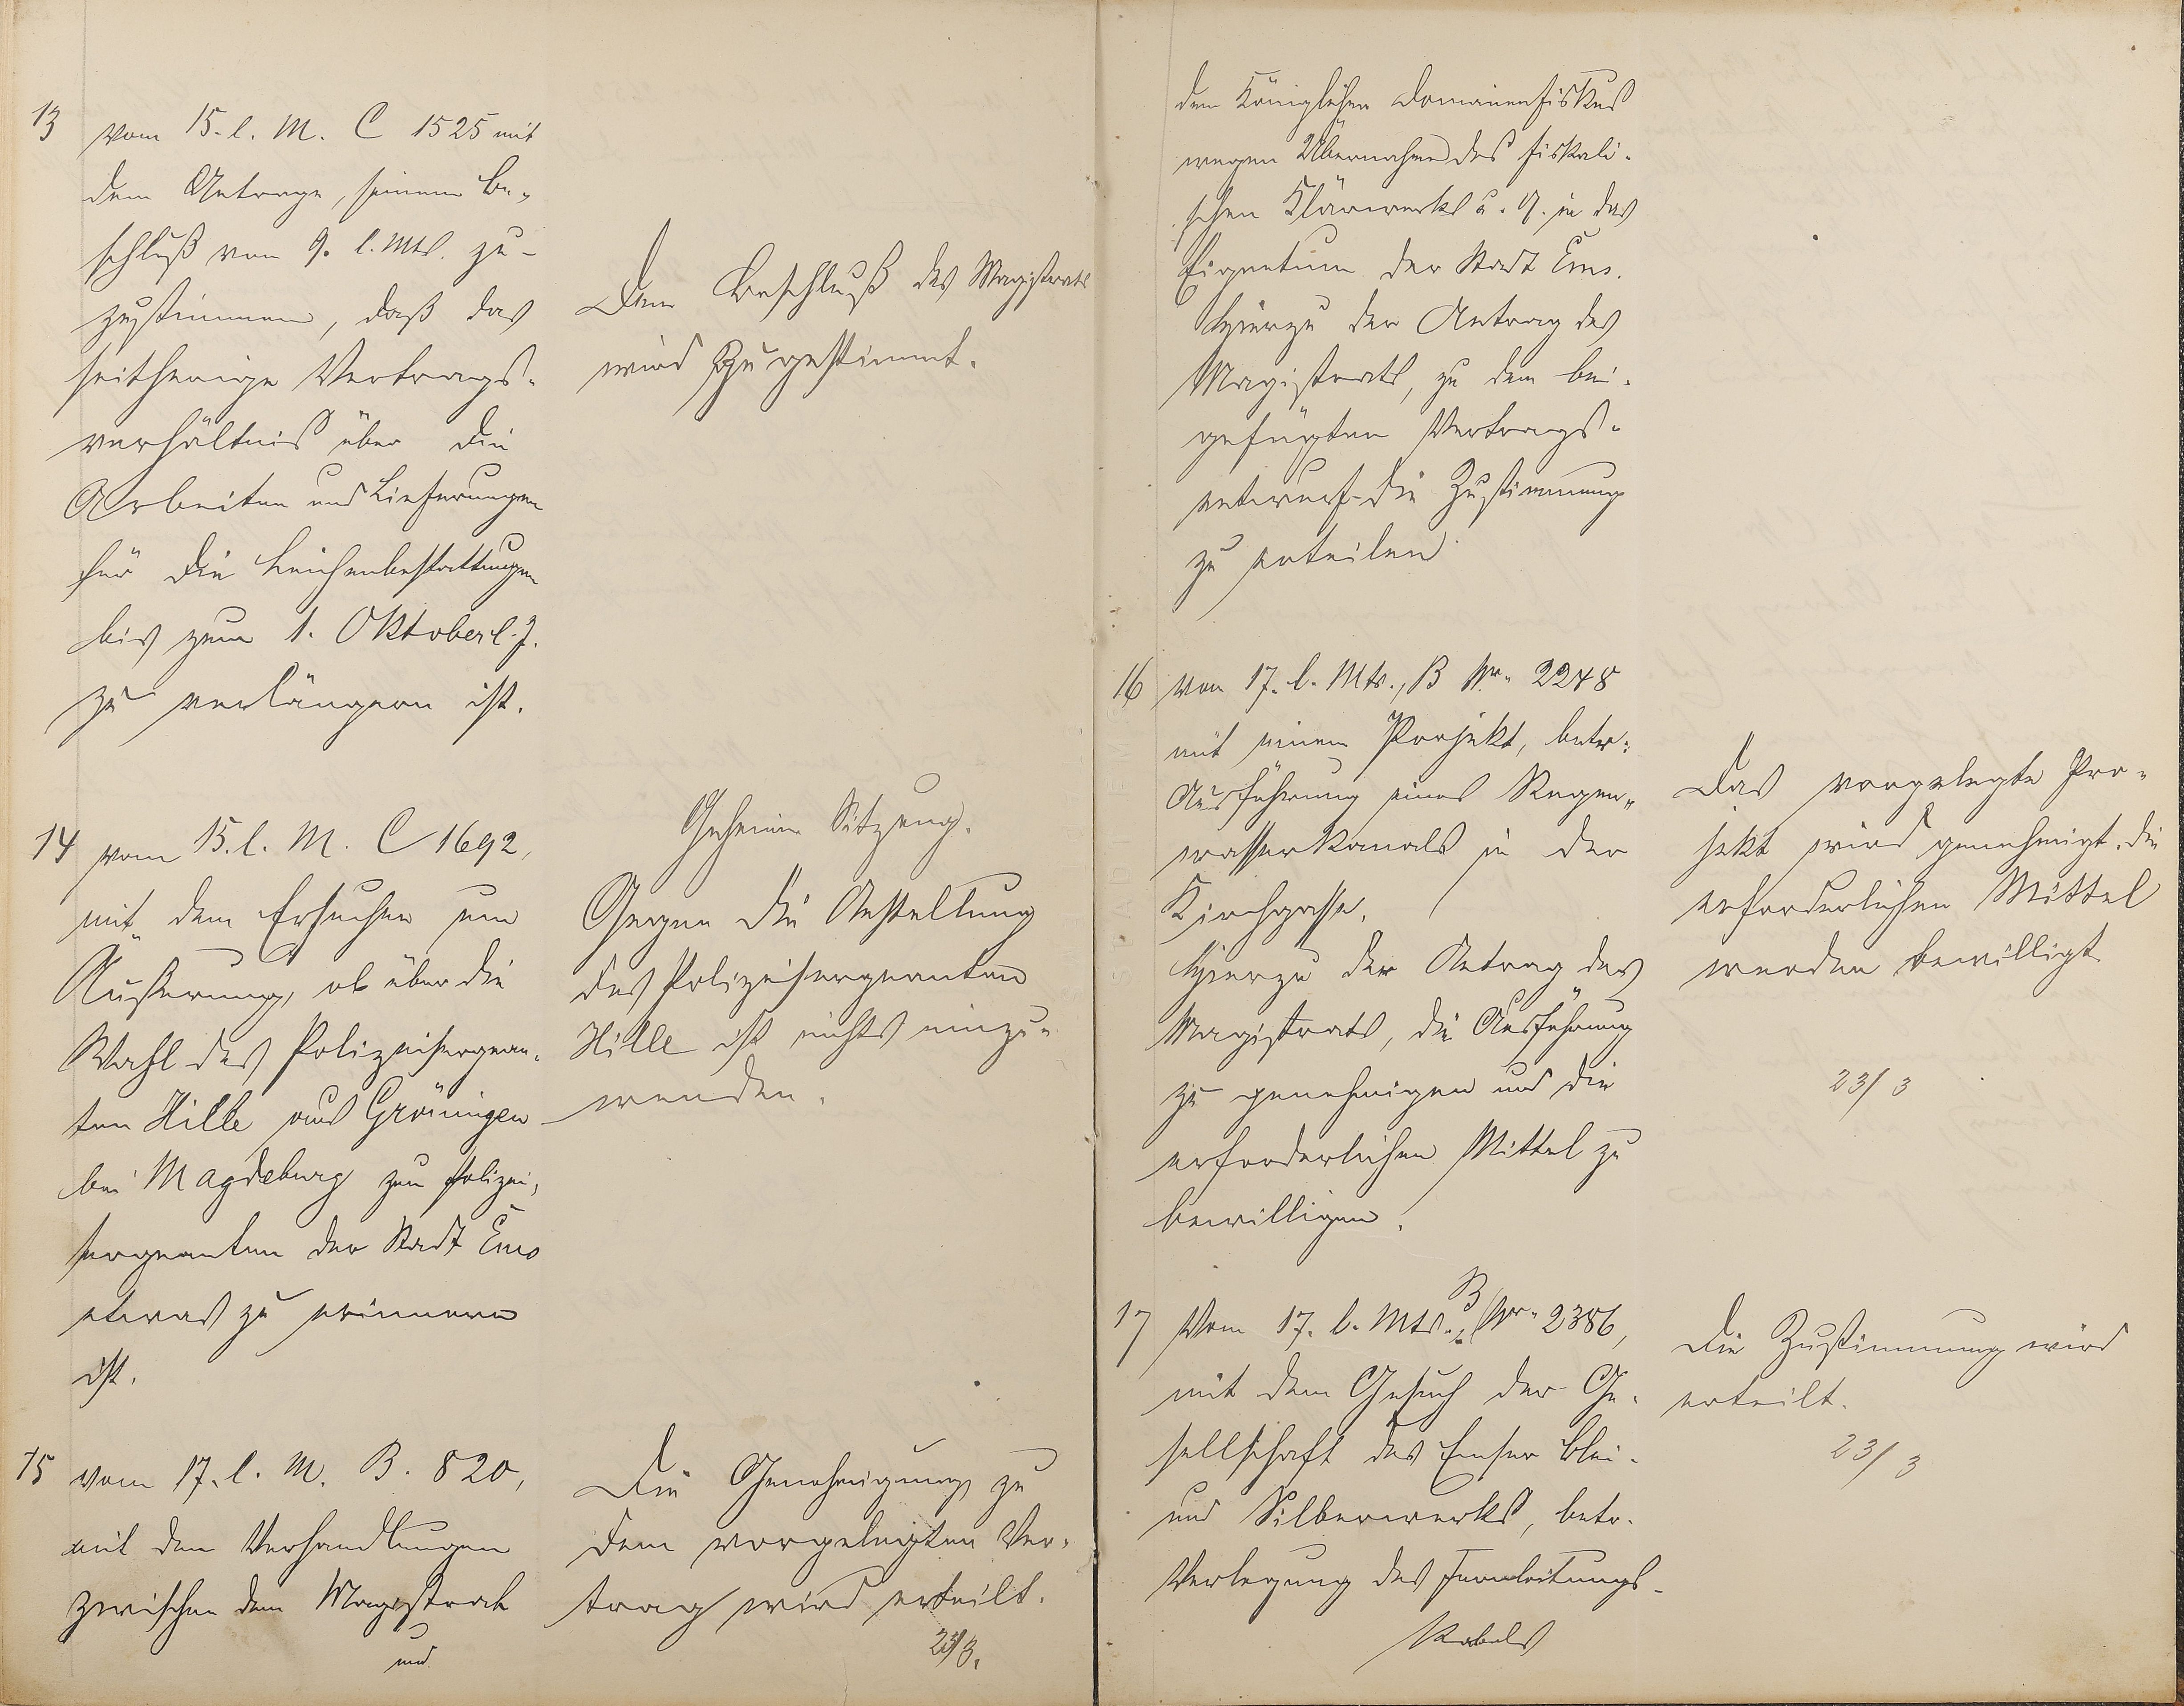 13
vom 15. l. M. C 1525 mit
dem Antrage, seinem Be-
schluß vom 9. l. Mts. zu-
zustimmen, daß das
seitherige Vertrags-
verhältniß über die
Arbeiten und Lieferungen
für die Leichenbestattungen
bis zum 1. Oktober l. J.
zu verlängern ist.
Dem Beschluß des Magistrats
wird zugestimmt.
14
vom 15. l. M. C 1692,
mit dem Ersuchen um
Äußerung, ob über die
Wahl des Polizeisergean-
ten Hille aus Gröningen
bei Magdeburg zum Polizei-
sergeanten der Stadt Ems
etwas zu erinnern
ist.
Geheime Sitzung.
Gegen die Anstellung
des Polizeisergeanten
Hille ist nichts einzu-
wenden.
15
vom 17. l. M. B. 820,
mit den Verhandlungen
zwischen dem Magistrat
und
Die Genehmigung zu
dem vorgelegten Ver-
trag wird erteilt.
23/3.
dem Königlichen Domänenfiskus
wegen Übernahme des fiskali-
schen Klärwerks u. A. in das
Eigentum der Stadt Ems.
Hierzu der Antrag des
Magistrats, zu dem bei-
gefügten Vertrags-
entwurf die Zustimmung
zu erteilen.
16
vom 17. l. Mts., B Nr. 2248
mit einem Projekt, betr.
Ausführung eines Regen-
wasserkanals in der
Kirchgasse.
Hierzu der Antrag des
Magistrats, die Ausführung
zu genehmigen und die
erforderlichen Mittel zu
bewilligen.
Das vorgelegte Pro-
jekt wird genehmigt. die
erforderlichen Mittel
werden bewilligt.
23/3
17
Vom 17. l. Mts., B Nr. 2386,
mit dem Gesuch der Ge-
sellschaft des Emser Blei-
und Silberwerks, betr.
Verlegung des Fernleitungs-
Kabels
Die Zustimmung wird
erteilt.
23/3